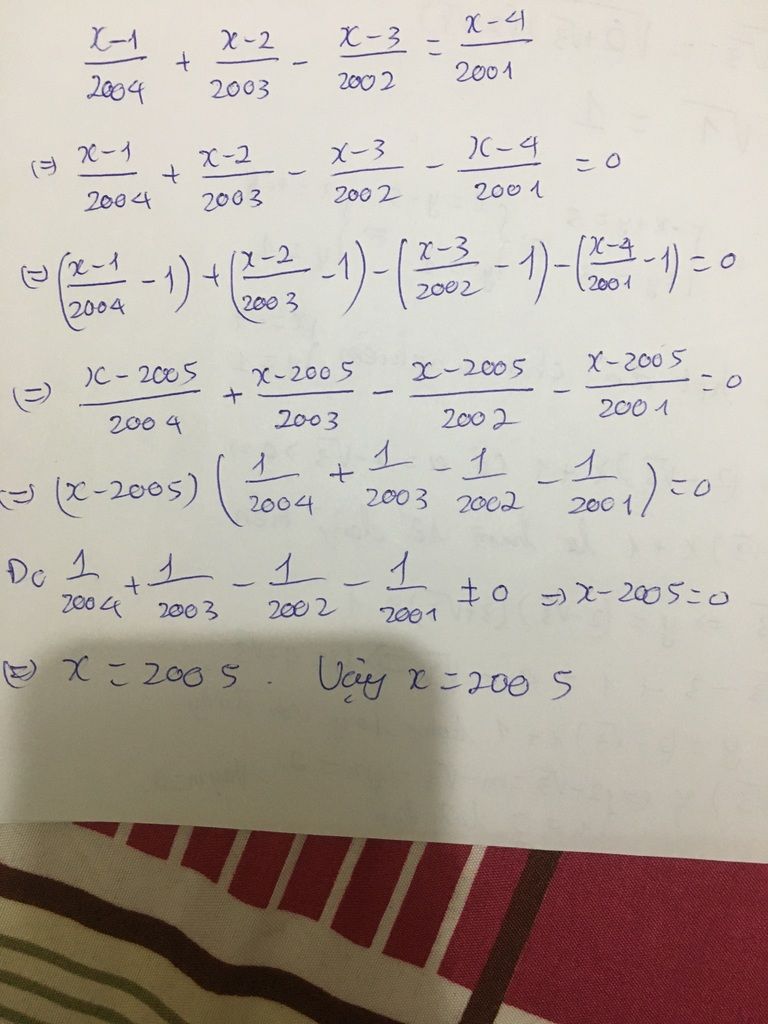 x-1/2004 + x-2/2003 - x-3/2002 = x-4/2001
(=) x-1/2004 + x-2/2003 - x-3/2002 - x-4/2001 = 0
(=) (x-1/2004 - 1) + (x-2/2003 - 1) - (x-3/2002 - 1) - (x-4/2001 - 1) = 0
(=) x-2005/2004 + x-2005/2003 - x-2005/2002 - x-2005/2001 = 0
(=) (x-2005) (1/2004 + 1/2003 - 1/2002 - 1/2001) = 0
Do 1/2004 + 1/2003 - 1/2002 - 1/2001 ≠ 0 => x-2005=0
(=) x = 2005. Vậy x = 2005